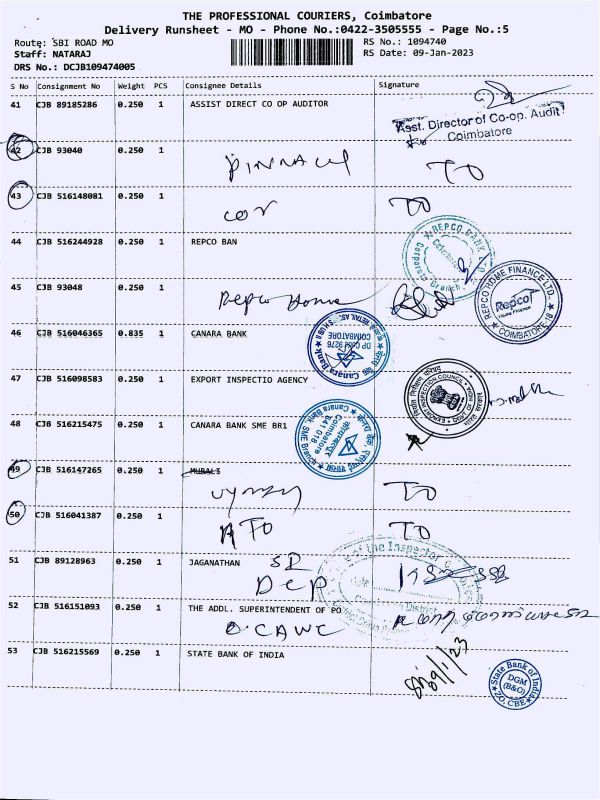 THE PROFESSIONAL COURIERS, Coimbatore
Delivery Runsheet - MO - Phone No.:0422-3505555 - Page No.:5
Route: SBI ROAD MO
RS No.: 1094740
Staff: NATARAJ
RS Date: 09-Jan-2023
DRS No.: DCJB109474005
S No Consignment No Weight PCS Consignee Details Signature
41 CJB 89185286 0.250 1 ASSIST DIRECT CO OP AUDITOR
Asst. Director of Co-op. Audit
Coimbatore
42 CJB 93040 0.250 1
TO
43 CJB 516148081 0.250 1
TO
44 CJB 516244928 0.250 1 REPCO BAN
REPCO BANK
45 CJB 93048 0.250 1
Repco Home
REPCO HOME FINANCE LTD.
Repco
Home Finance
COIMBATORE
46 CJB 516046365 0.835 1 CANARA BANK
Canara Bank
COIMBATORE
47 CJB 516098583 0.250 1 EXPORT INSPECTIO AGENCY
EXPORT INSPECTION COUNCIL
48 CJB 516215475 0.250 1 CANARA BANK SME BR1
Canara Bank, SME Branch
Coimbatore
641 018
49 CJB 516147265 0.250 1 MURALI
TO
50 CJB 516041387 0.250 1
ATO TO
51 CJB 89128963 0.250 1 JAGANATHAN SR
DCP
of the Inspector
District
52 CJB 516151093 0.250 1 THE ADDL. SUPERINTENDENT OF PO
O.CAWC
53 CJB 516215569 0.250 1 STATE BANK OF INDIA
09/1/23
State Bank of India
DGM
(B&O)
ZO, CBE